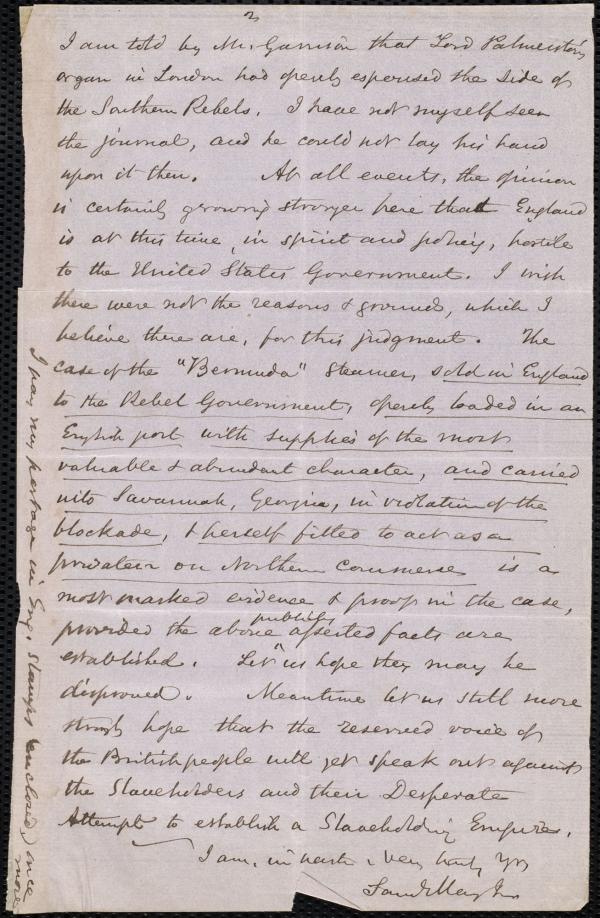 2
I am told by Mr. Garrison that Lord Palmerston's
organ in London had openly espoused the side of
the Southern Rebels. I have not myself seen
the journal, and he could not lay his hand
upon it then. At all events, the opinion
is certainly growing stronger here that England
is at this time, in spirit and policy, hostile
to the United States Government. I wish
there were not the reasons & grounds, which I
believe there are, for this judgment. The
case of the "Bermuda" steamer, sold in England
to the Rebel Government, openly loaded in an
English port with supplies of the most
valuable & abundant character, and carried
into Savannah, Georgia, in violation of the
blockade, & herself fitted to act as a
privateer on Northern Commerce is a
most marked evidence & proof in the case,
provided the above publicly asserted facts are
established. Let us hope they may be
disproved. Meantime let us still more
strongly hope that the reserved voice of
the British people will yet speak out against
the Slaveholders and their Desperate
Attempt to establish a Slaveholding Empire.
I am, in haste, very truly Yrs
Saml May Jr.
I pay my postage in Eng. stamps (enclosed,) once
more